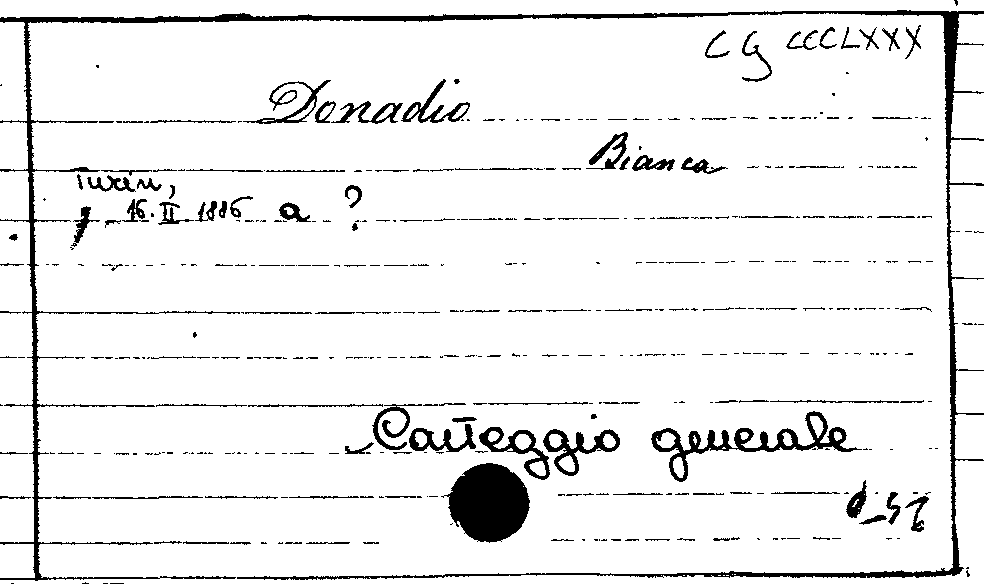 CG CCCLXXX
Donadio
Bianca
Turin,
16.II.1886 a ?
Carteggio generale